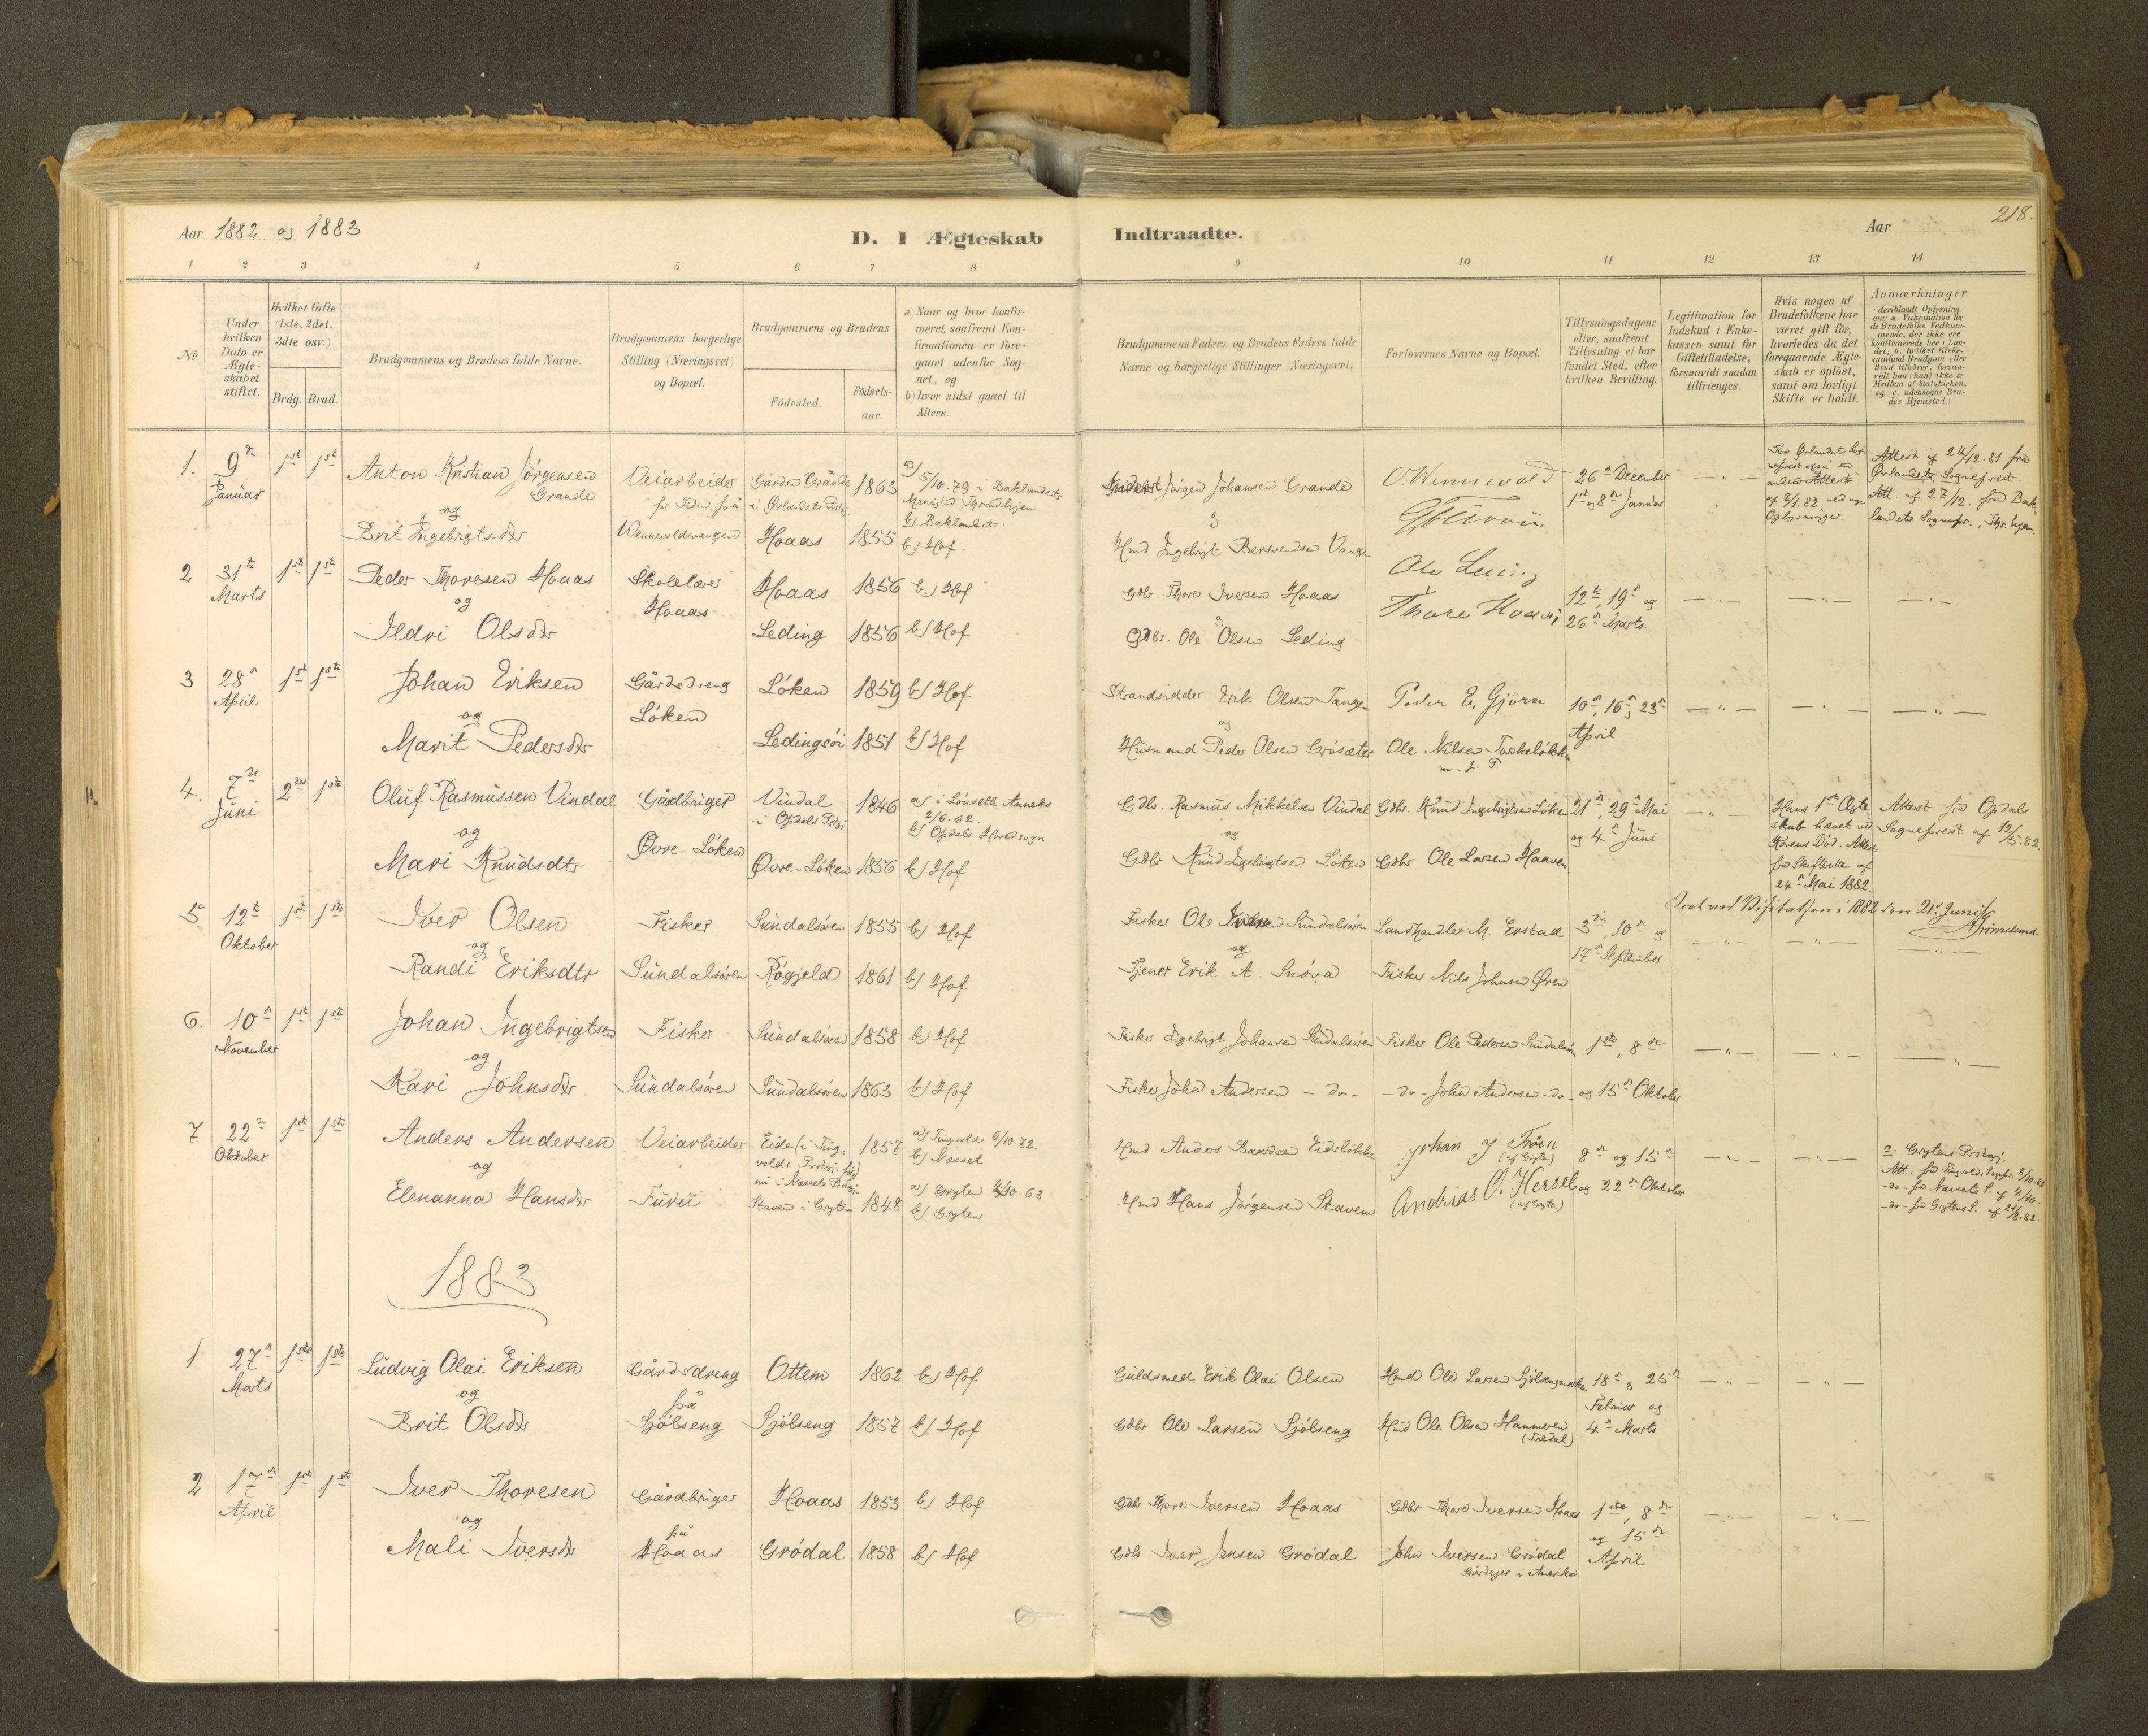 Aar 1882 og 1883
D. I Ægteskab
Indtraadte.
Aar
218.
1 2 3 4 5 6 7 8 9 10 11 12 13 14
No
Under hvilken Dato er Ægteskabet stiftet.
Hvilket Gifte (1ste, 2det, 3die osv.)
Brdg. Brud.
Brudgommens og Brudens fulde Navne.
Brudgommens borgerlige Stilling (Næringsvei) og Bopæl.
Brudgommens og Brudens
Födested.
Födsels-aar.
a) Naar og hvor konfirmeret, saafremt Konfirmationen er foregaaet udenfor Sognet, og
b) hvor sidst gaaet til Alters.
Brudgommens Faders og Brudens Faders fulde Navne og borgerlige Stillinger (Næringsvei)
Forlovernes Navne og Bopæl.
Tillysningsdagene eller, saafremt Tillysning ei har fundet Sted, efter hvilken Bevilling.
Legitimation for Indskud i Enkekassen samt for Giftetilladelse, forsaavidt saadan tiltrænges.
Hvis nogen af Brudefolkene har været gift för, hvorledes da det foregaaende Ægteskab er oplöst, samt om lovligt Skifte er holdt.
Anmærkninger
(deriblandt Oplysning om: a. Vakcination för de Brudefolks Vedkommende, der ikke ere konfirmerede her i Landet; b. hvilket Kirkesamfund Brudgom eller Brud tilhörer, forsaavidt han (hun) ikke er Medlem af Statskirken, og c. udensogns Brudes Hjemsted.)
1. 9de Januar 1st 1st Anton Kristian Jörgensen Grande
og
Brit Ingebrigtsdtr
Veiarbeider for Tiden på Wennevoldsvangen
Gården Grande i Örlandets Prstgj. 1863
a) 5/10.79 i Baklandets Menighd, Throndhjem
b) Baklandet.
Hoaas 1855 b) Hof.
Jörgen Johansen Grande
Hmd Ingebrigt Bersvendsen Vangen
O. Wennevold
26n December
1st og 8n Januar
Attest af 24/12.81 fra Ørlandets Sognepræst.
Att. af 27/12. fra Baklandets Sognepr., Thr.hjem.
2 31te Marts 1st 1st Peder Thoresen Hoaas
og
Ildri Olsdtr
Skolelærer Hoaas
Hoaas 1856 b) Hof
Leding 1856 b) Hof
Gdbr. Thore Iversen Hoaas
Gdbr. Ole Olsen Leding
Ole Leding
Thore Hoaas
12te, 19n og 26n Marts.
3 28n April 1st 1ste Johan Eriksen
og
Marit Pedersdtr
Gårdsdreng Löken
Löken 1859 b) Hof
Ledingsöi 1851 b) Hof
Strandsidder Erik Olsen Tangen
og
Husmand Peder Olsen Grösæter
Peder E. Gjöra
Ole Nilsen Torskelökken
m. f. P.
10n, 16n, 23n April
4. 7de Juni 2det 1ste Oluf Rasmussen Vindal
og
Mari Knudsdtr
Gårdbruger Övre-Löken
Vindal i Opdals Prstgj 1846
a) i Lönseth Anneks 2/6.62.
b) Opdals Hovedsogn
Övre-Löken 1856 b) Hof
Gdbr. Rasmus Mikkelsen Vindal
og
Gdbr Knud Ingebrigtsen Löken
Gdbr. Knud Ingebrigtsen Löken
Gdbr Ole Larsen Haaven
21n, 29n Mai og 4n Juni
Hans 1st Ægteskab hævet ved Konens Död. Attest fra Skifteretten af 24n Mai 1882.
Attest fra Opdals Sognepræst af 12/5.82.
Seet ved Visitatsen i 1882 den 21de Juni
Grimelund
5 12te Oktober 1st 1ste Iver Olsen
og
Randi Eriksdtr
Fisker Sundalsören
Sundalsören 1855 b) Hof
Rögjeld 1861 b) Hof
Fisker Ole Iversen Sundalsören
og
Tjener Erik A. Snöva
Landhandler M. Erstad
Fisker Nils Johnsen Øren
3die, 10n og 17n September
6. 10n November 1st 1st Johan Ingebrigtsen
og
Kari Johnsdtr
Fisker Sundalsören
Sundalsören 1858 b) Hof
Sundalsören 1863 b) Hof
Fisker Ingebrigt Johansen Sundalsören
Fisker John Andersen - do -
Fisker Ole Pedersen Sundalsören
- do - John Andersen - do -
1ste, 8de og 15n Oktober
7 22n Oktober 1st 1st Anders Andersen
og
Elenanna Hansdtr
Veiarbeider Furu
Eide (i Tingvolds Prstgj. nu i Næssets Prstgj. 1857
a) Tingvold 6/10 72.
b) Næsset
Staven i Gryten 1848
a) Gryten 4/10.63
b) Gryten
Hmd Anders Eidslökken
Hmd Hans Jörgensen Stavem
Johan J Troen (af Gryten)
Andrias O. Hersel (af Gryten)
8n og 15n og 22n Oktober
c. Grytens Prstegj.
Att. fra Tingvold Sognpr. 3/10.82
- do - fra Næssets S. af 4/10.
- do - fra Grytens S. af 21/8.82.
1883
1 27n Marts 1ste 1ste Ludvig Olai Eriksen
og
Brit Olsdtr
Gårdsdreng på Sjölseng
Ottem 1862 b) Hof
Sjölseng 1857 b) Hof
Guldsmed Erik Olai Olsen
Gdbr Ole Larsen Sjölseng
Hmd Ole Larsen Sjölsengmarken
Hmd Ole Olsen Hammeren (Tredal)
18n, 25n Februar og 4n Marts
2 17n April 1st 1st Iver Thoresen
og
Mali Iversdtr
Gårdbruger på Hoaas
Hoaas 1853 b) Hof
Grödal 1858 b) Hof
Gdbr Thore Iversen Hoaas
Gdbr Iver Jensen Grödal
Gdbr Thore Iversen Hoaas
John Iversen Grödal
Gårdejer i Amerika
1ste, 8de og 15de April